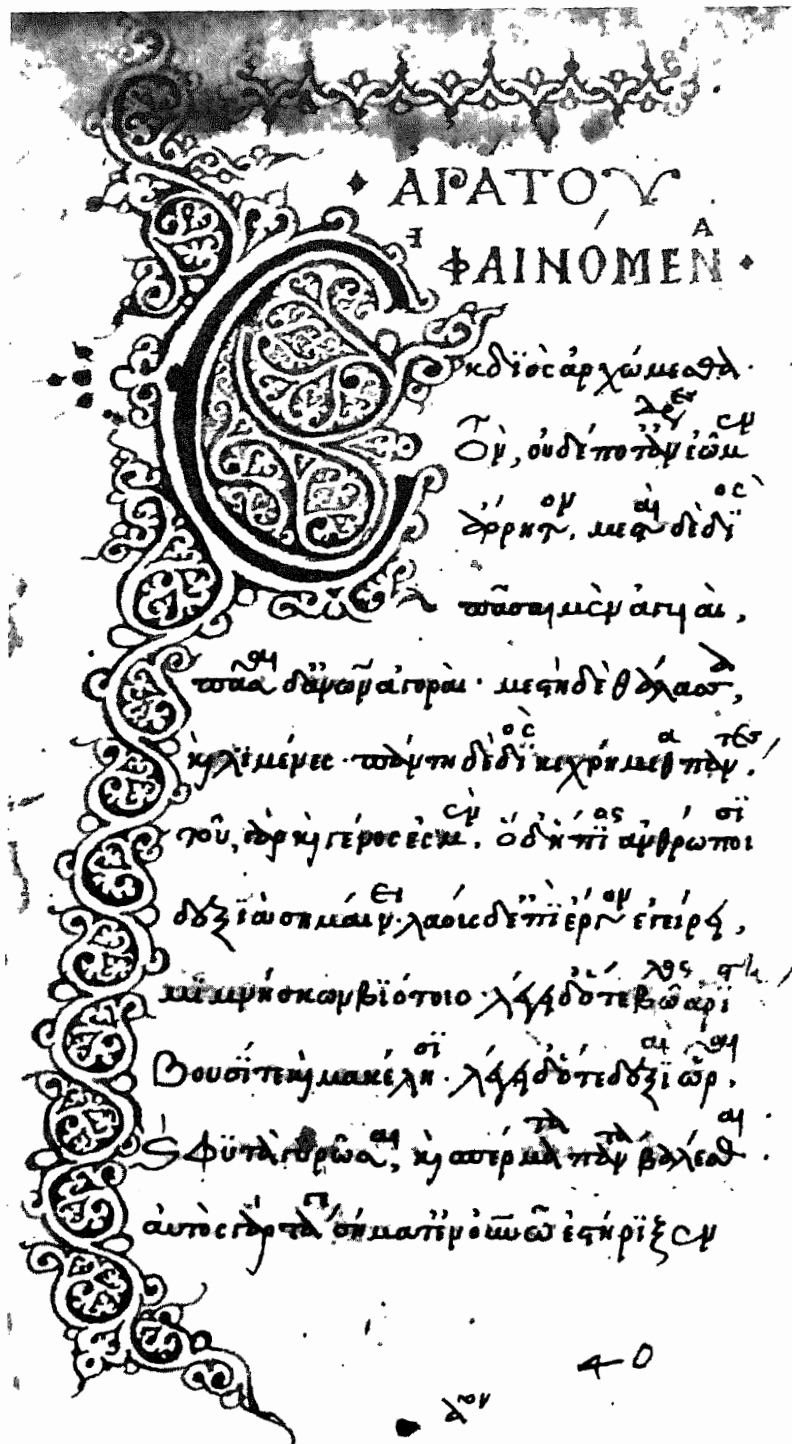 ΑΡΑΤΟΥ
ΦΑΙΝΟΜΕΝΑ
Εκ διὸς ἀρχώμεσθα·
τὸν, οὐδέποτ' ἄνδρες ἐῶμεν
ἄρρητον· μεσταὶ δὲ διὸς
πᾶσαι μὲν ἀγυιαὶ,
πᾶσαι δ' ἀνθρώπων ἀγοραί· μεστὴ δὲ θάλασσα,
καὶ λϊμένες· πάντη δὲ διὸς κεχρήμεθα πάντες·
τοῦ γὰρ καὶ γένος ἐσμέν· ὁ δ' ἤπϊος ἀνθρώποισϊ
δεξϊὰ σημαίνει· λαοὺς δ' ἐπὶ ἔργον ἐγείρει,
μϊμνήσκων βϊότοιο· λέγει δ' ὅτε βῶλος ἀρίστη
βουσί τε καὶ μακέλησϊ· λέγει δ' ὅτε δεξϊαὶ ὧραι
καὶ φϋτὰ γυρῶσαι, καὶ σπέρματα πάντα βαλέσθαι·
αὐτὸς γὰρ τά γε σήματ' ἐν οὐρανῶ ἐστήρϊξεν